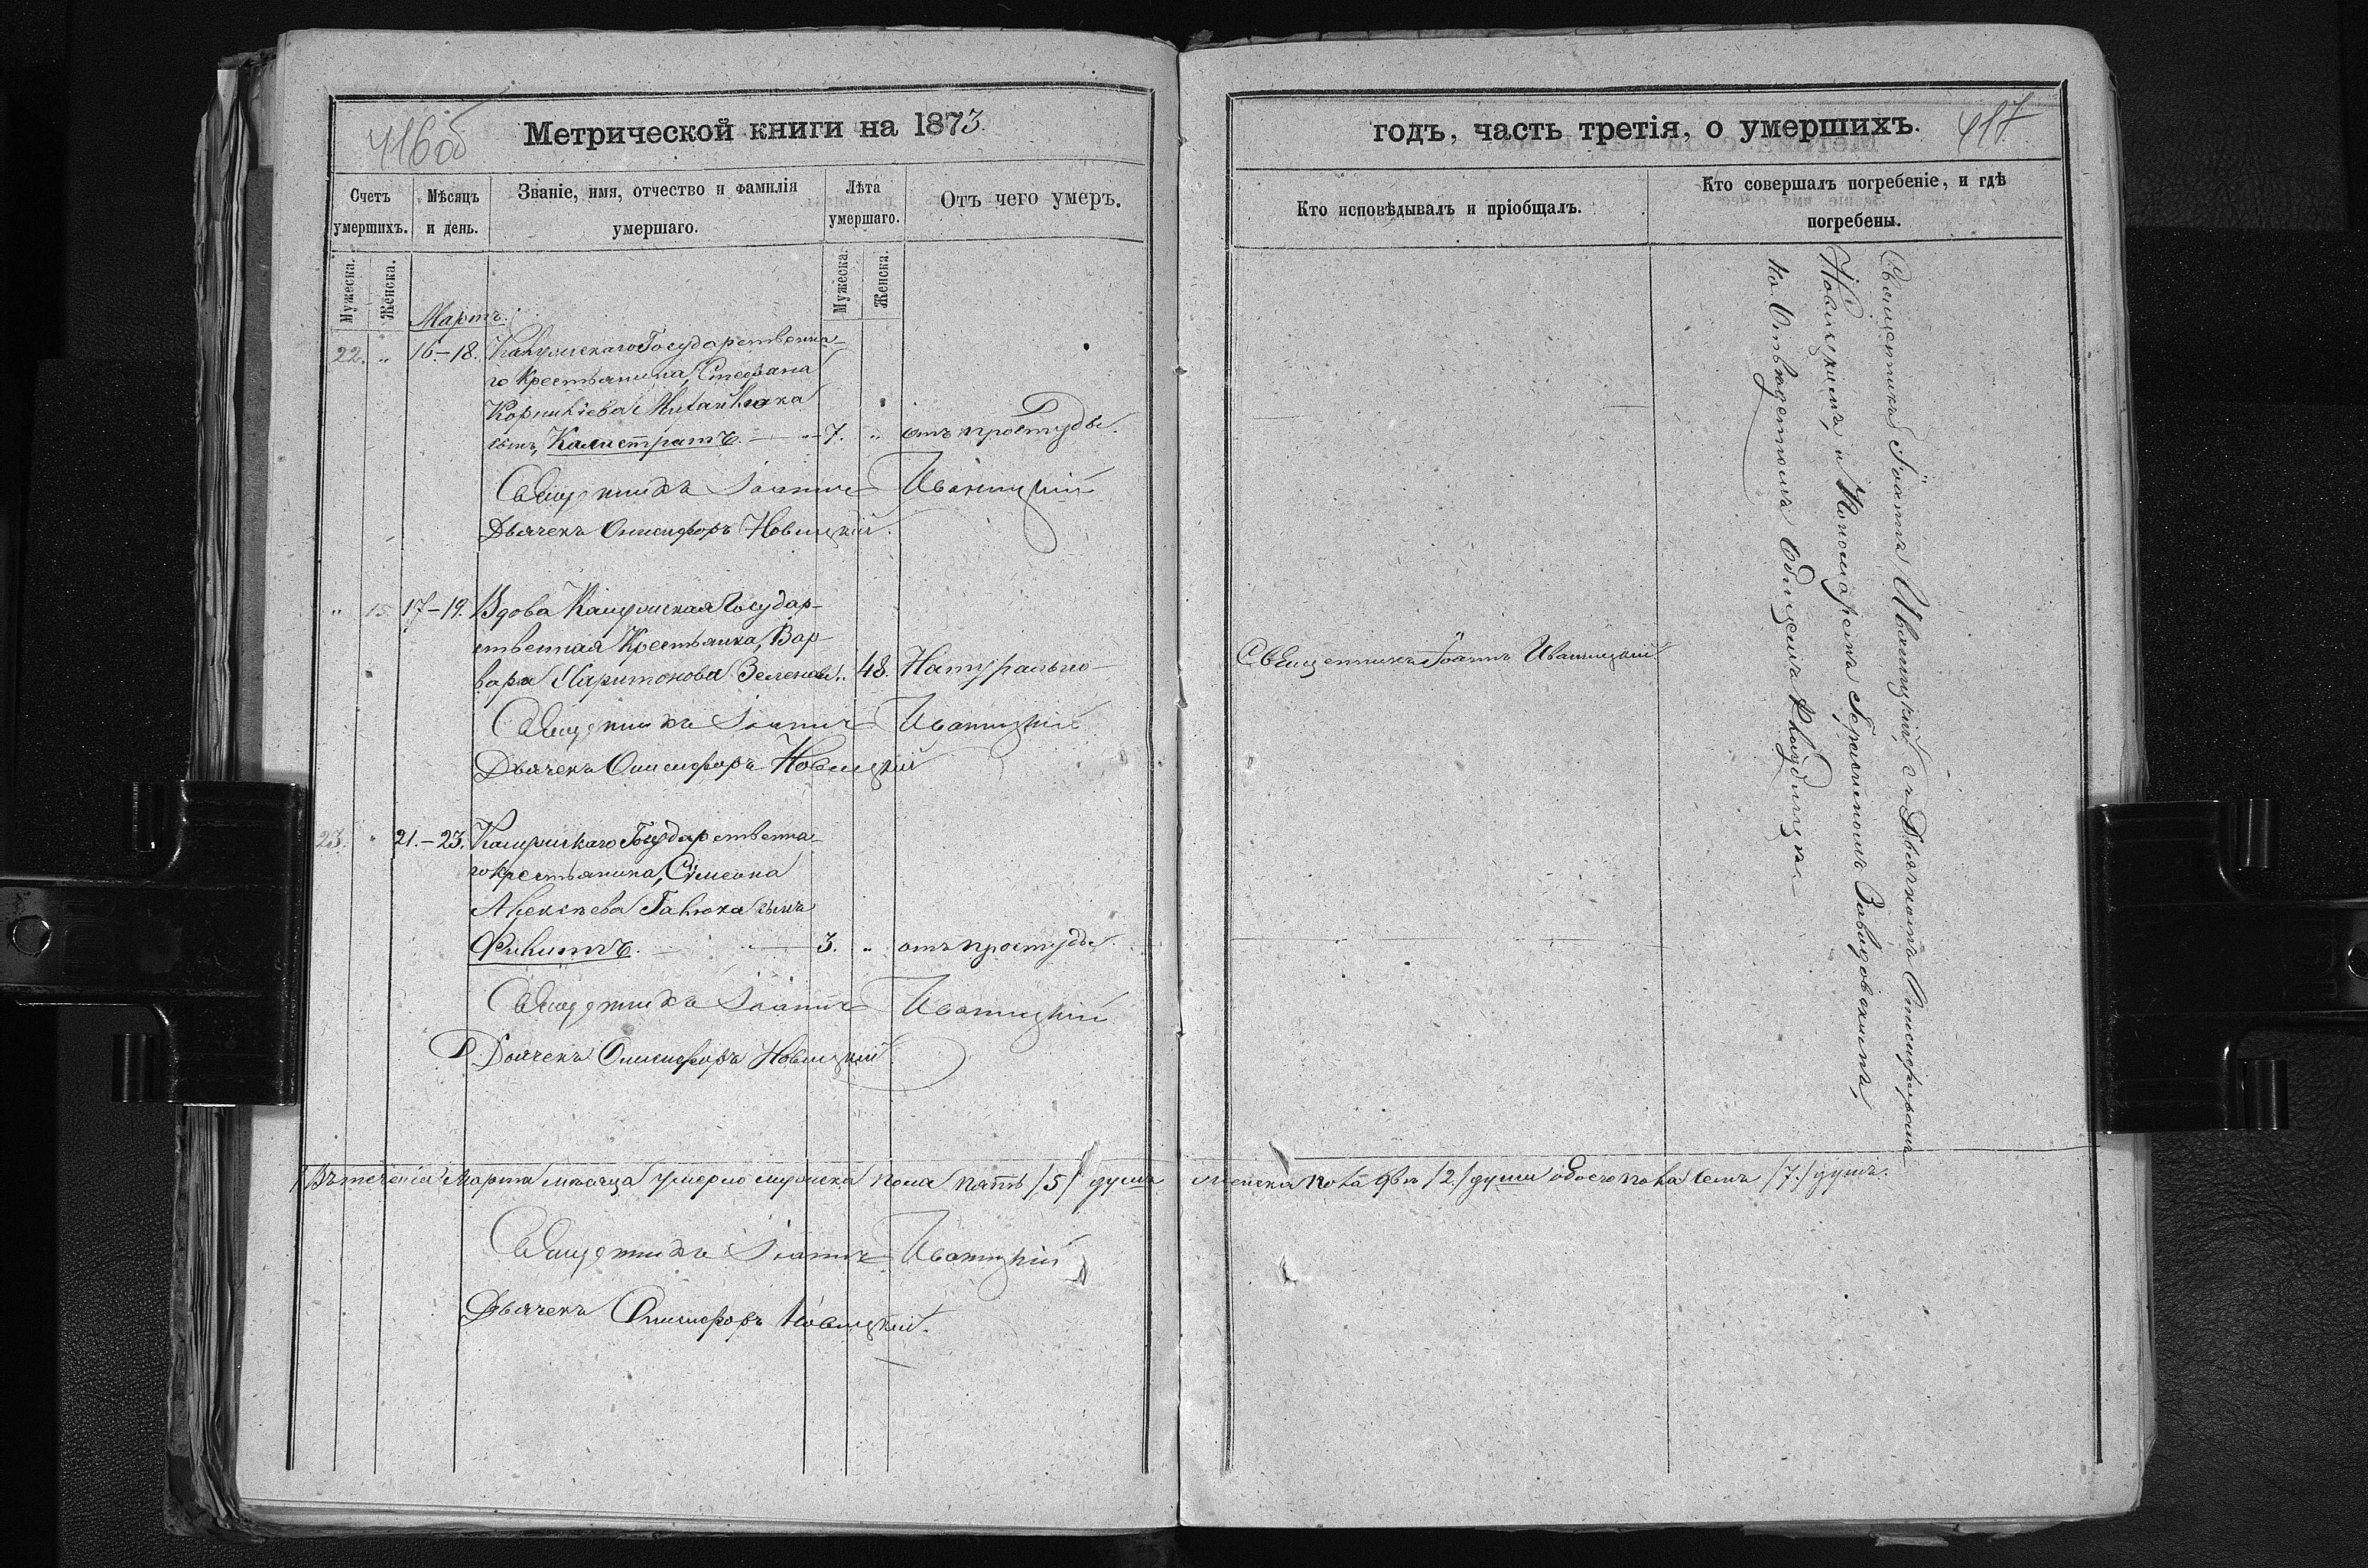 416об
Метрической книги на 1873.
Счетъ умершихъ.
Мѣсяцъ и день.
Званіе, имя, отчество и фамилія умершаго.
Лѣта умершаго.
Отъ чего умеръ.
Мужеска.
Женска.
Мужеска.
Женска.
Мартъ.
22. " 16.-18. Государственна-
го крестьянина, Стефана
сынъ, Калистратъ. 7. " отъ простуды.
Священникъ Іоаннъ Иваницкій
Дьячекъ Онисифоръ Новицкій.
" 15 17-19. Вдова Государ-
ственная Крестьянка, Вар-
вара Харитонова 48. Натурально
Священникъ Іоаннъ Иваницкій
Дьячекъ Онисифоръ Новицкій
23. " 21.-23. Государственна-
го крестьянина, Сѵмеона
Алексѣева сынъ
Филиппъ. 3. " отъ простуды.
Священникъ Іоаннъ Иваницкій
Дьячекъ Онисифоръ Новицкій.
Въ теченіи Марта мѣсяца умерло мужеска пола пять /5/ душъ
Священникъ Іоаннъ Иваницкій
Дьячекъ Онисифоръ Новицкій.
годъ, часть третія, о умершихъ.
417
Кто исповѣдывалъ и пріобщалъ.
Кто совершалъ погребеніе, и гдѣ погребены.
Священникъ Іоаннъ Иваницкій.
Священникъ Іоаннъ Иваницкій, съ Дьячкомъ Онисифоромъ
Новицкимъ, и Пономаремъ Завадовскимъ,
на общемъ кладбищѣ.
женска пола двѣ /2./ души обоего пола семь /7./ душъ.